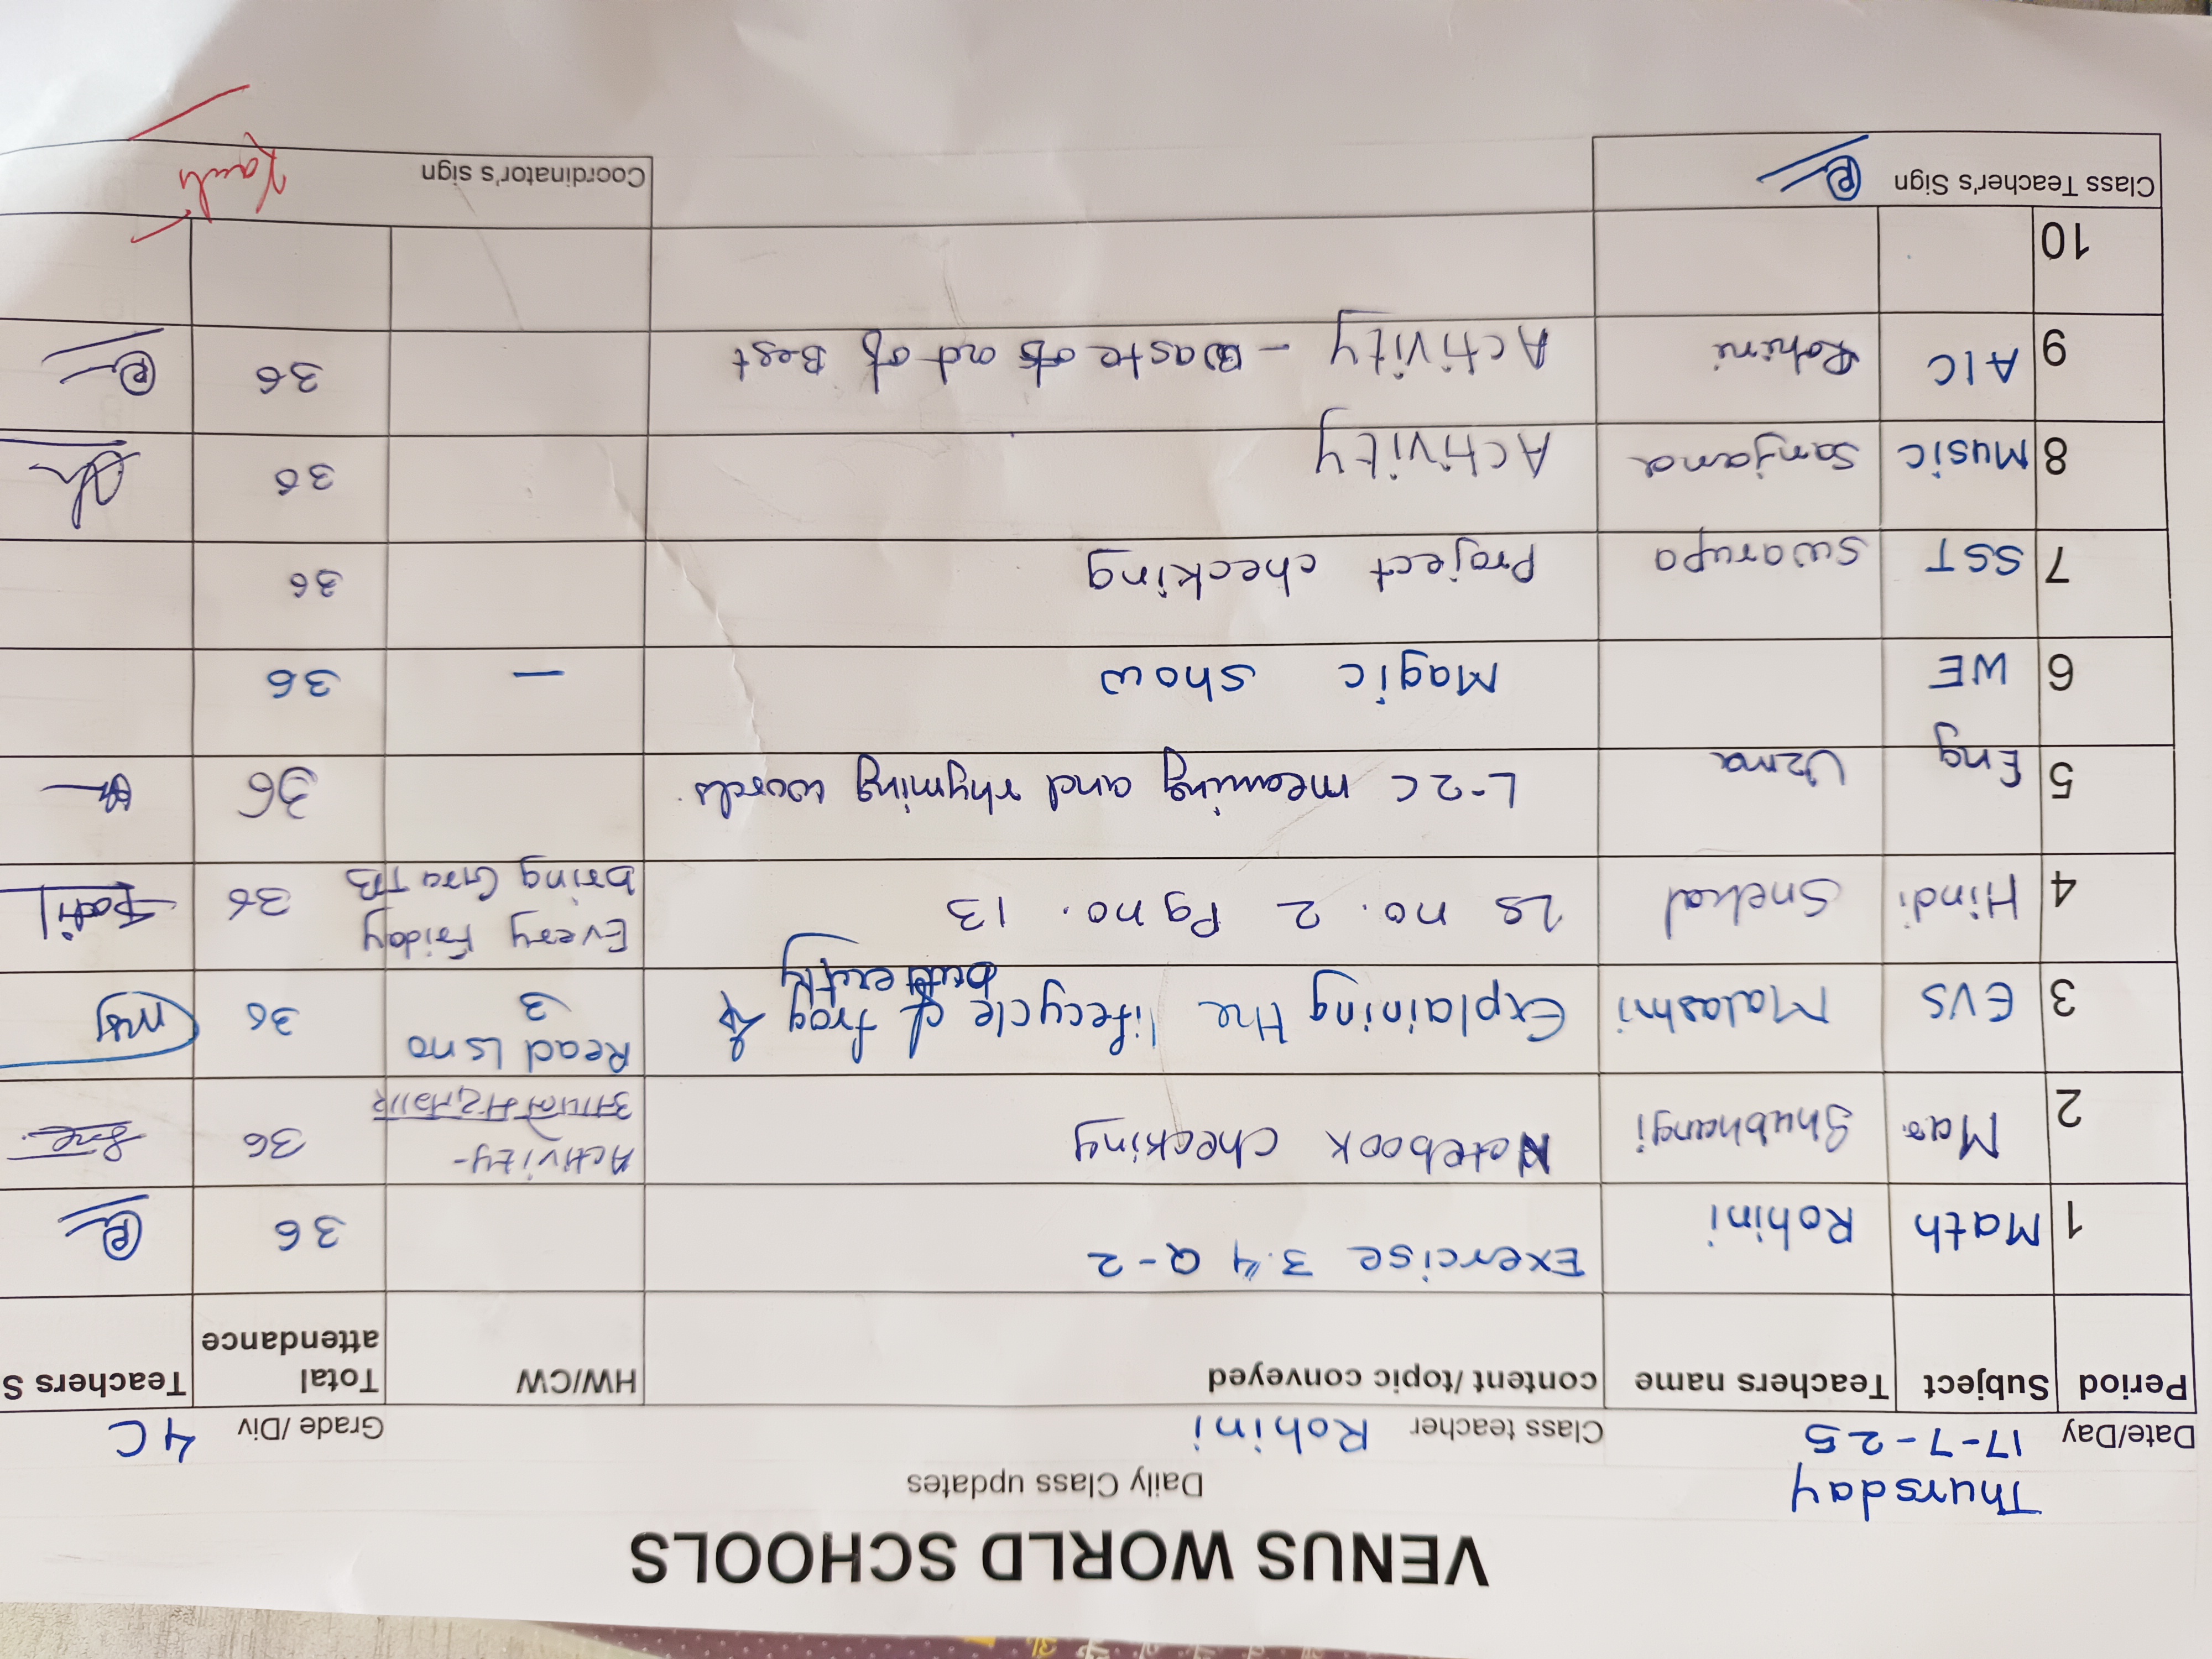 VENUS WORLD SCHOOLS
Daily Class updates
Thursday
Date/Day 17-7-25 Class teacher Rohini Grade /Div 4C
Period Subject Teachers name content /topic conveyed HW/CW Total attendance Teachers S
1 Math Rohini Exercise 3.4 Q-2 36
2 Mar. Shubhangi Notebook checking Activity- 36
3 EVS Malashri Explaining the lifecycle of frog & butterfly Read Lsno 3 36
4 Hindi Snehal LS no. 2 Pg no. 13 Every Friday bring Gra TB 36 Patil
5 Eng Uzma L-2C meaning and rhyming words. 36
6 WE Magic show — 36
7 SST Swarupa Project checking 36
8 Music Sanjana Activity 36
9 AIC Rohini Activity - Waste of out of Best 36
10
Class Teacher's Sign Coordinator's sign